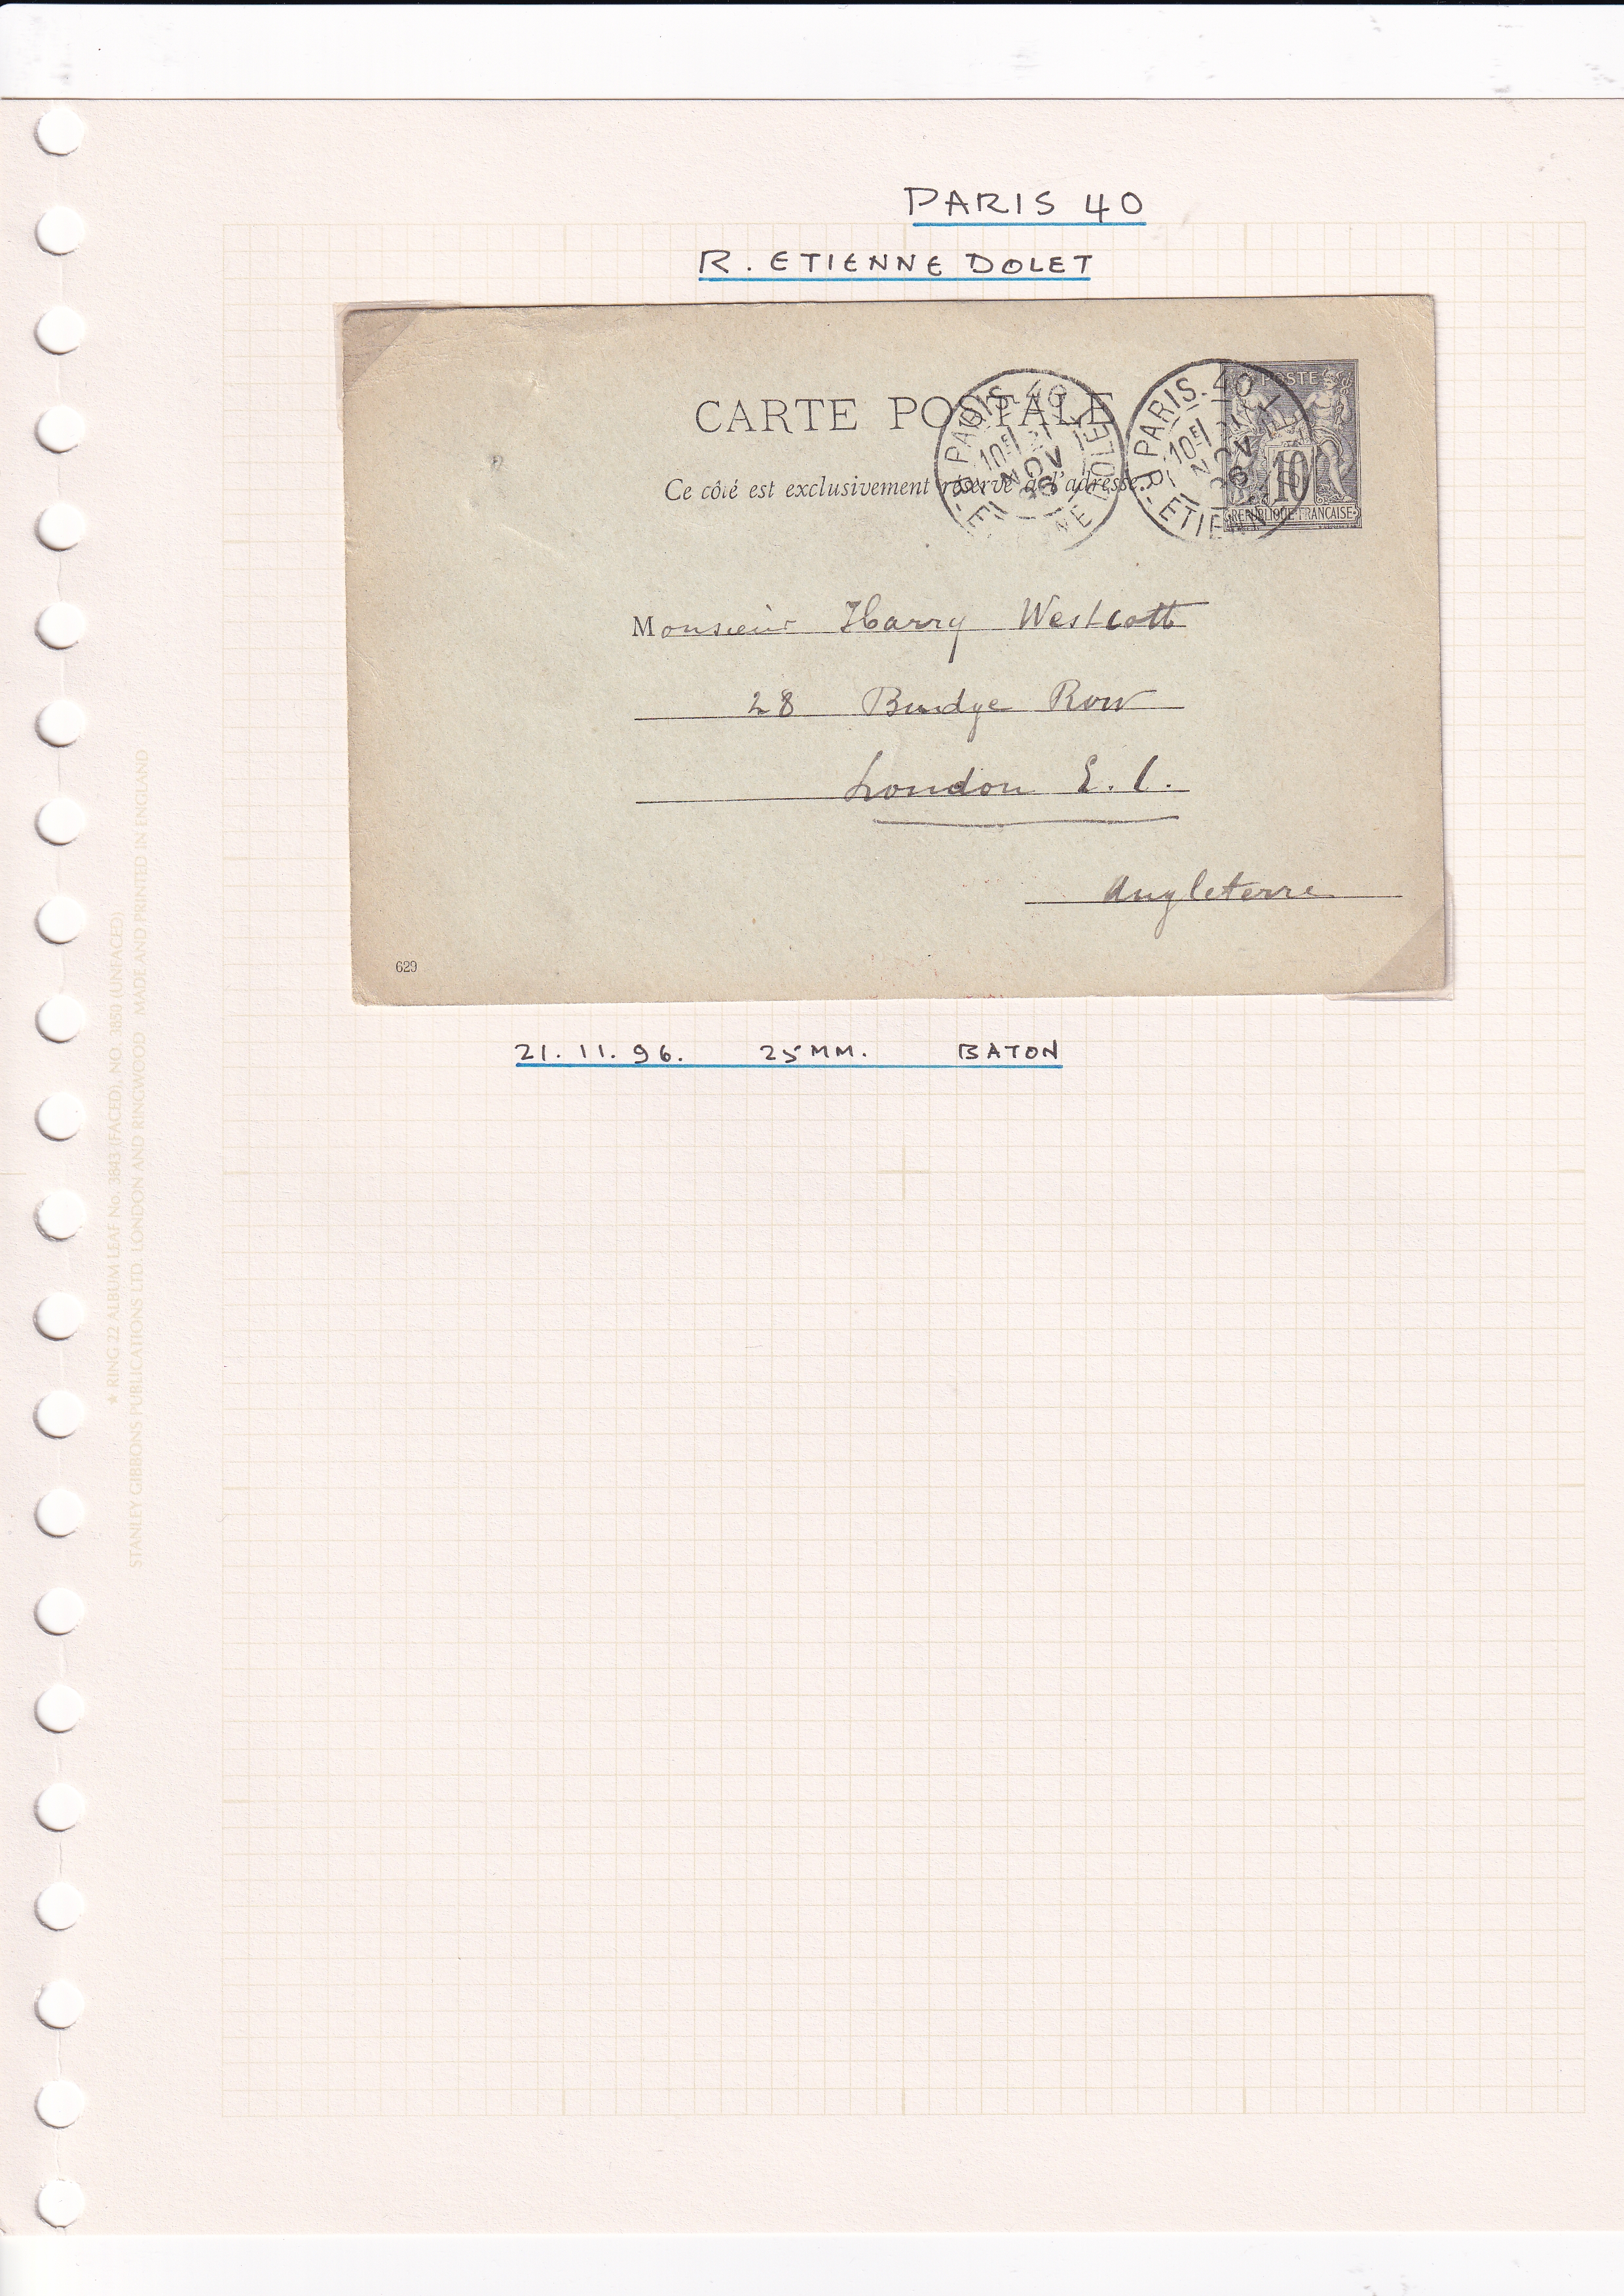 PARIS 40
R. ETIENNE DOLET
CARTE POSTALE
Ce côté est exclusivement réservé à l'adresse.
PARIS. 40
10E 21
NOV
96
R. ETIENNE DOLET
PARIS. 40
10E 21
NOV
96
R. ETIEN
POSTE
10
REPUBLIQUE FRANCAISE
Monsieur Harry Westcott
28 Budge Row
London E.C.
Angleterre
629
21. 11. 96. 25MM. BATON
★ RING 22 ALBUM LEAF No. 3843 (FACED), NO. 3850 (UNFACED)
STANLEY GIBBONS PUBLICATIONS LTD. LONDON AND RINGWOOD MADE AND PRINTED IN ENGLAND